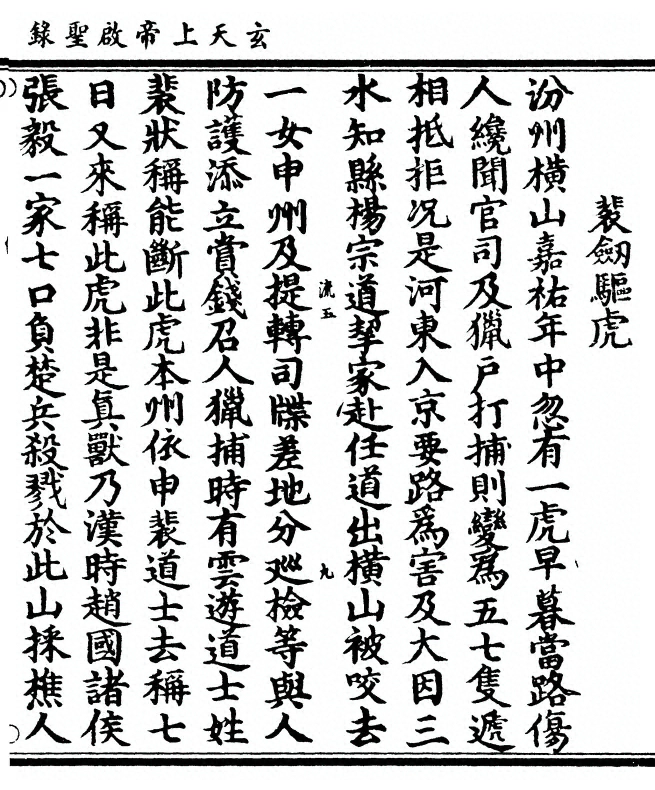 玄天上帝啟聖錄
裴劒驅虎
汾州橫山嘉祐年中忽有一虎早暮當路傷
人纔聞官司及獵戶打捕則變為五七隻遞
相抵拒况是河東入京要路為害及大因三
水知縣楊宗道挈家赴任道出橫山被咬去
流五
九
一女申州及提轉司牒差地分廵檢等與人
防護添立賞錢召人獵捕時有雲遊道士姓
裴狀稱能斷此虎本州依申裴道士去稱七
日又來稱此虎非是真獸乃漢時趙國諸侯
張毅一家七口負楚兵殺戮於此山採樵人